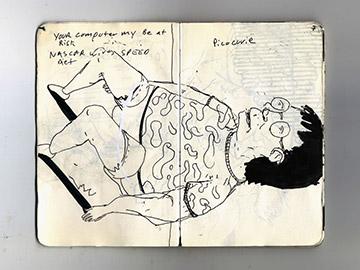 YOUR computer my Be at
Risk
NASCAR SPEED
Get
Picocurie